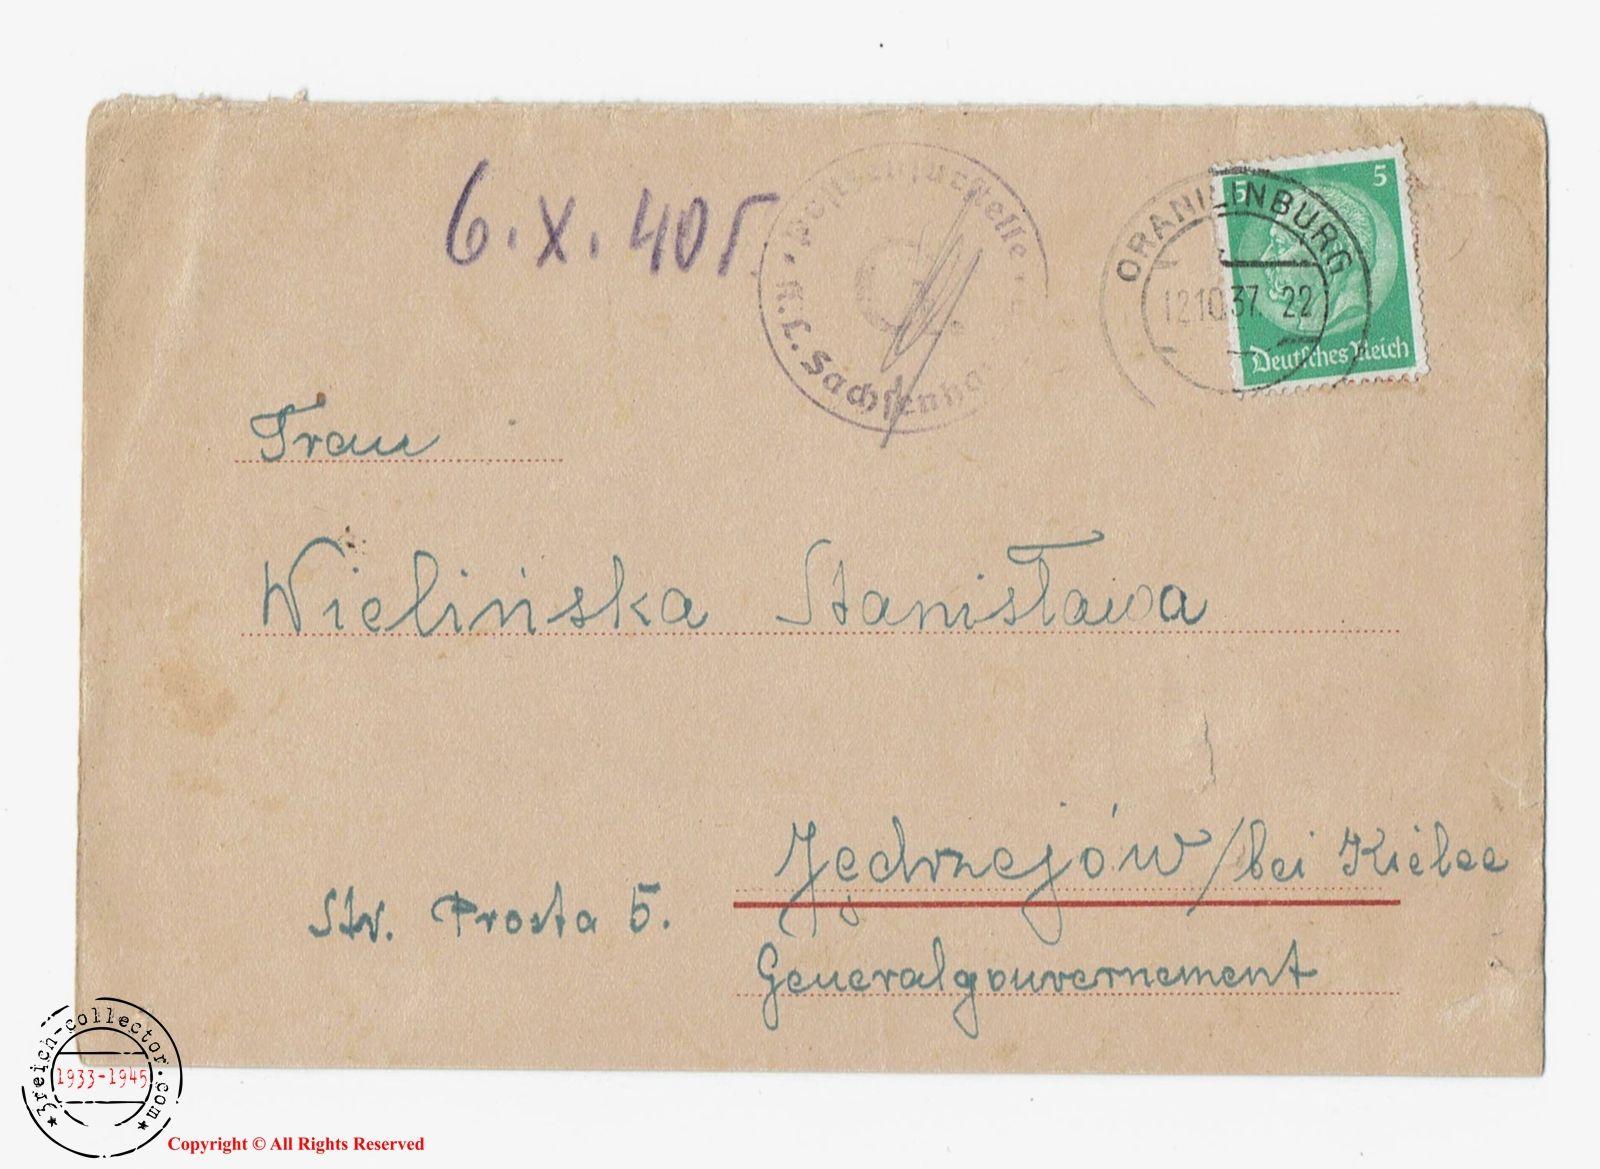 6.X.40r.
Postzensurstelle
K.L. Sachsenha
ORANIENBURG
12.10.37. 22
5 5
Deutsches Reich
Frau
Wielińska Stanisława
Jędrzejów/bei Kielce
Str. Prosta 5.
Generalgouvernement
3reich-collector.com
1933-1945
Copyright © All Rights Reserved